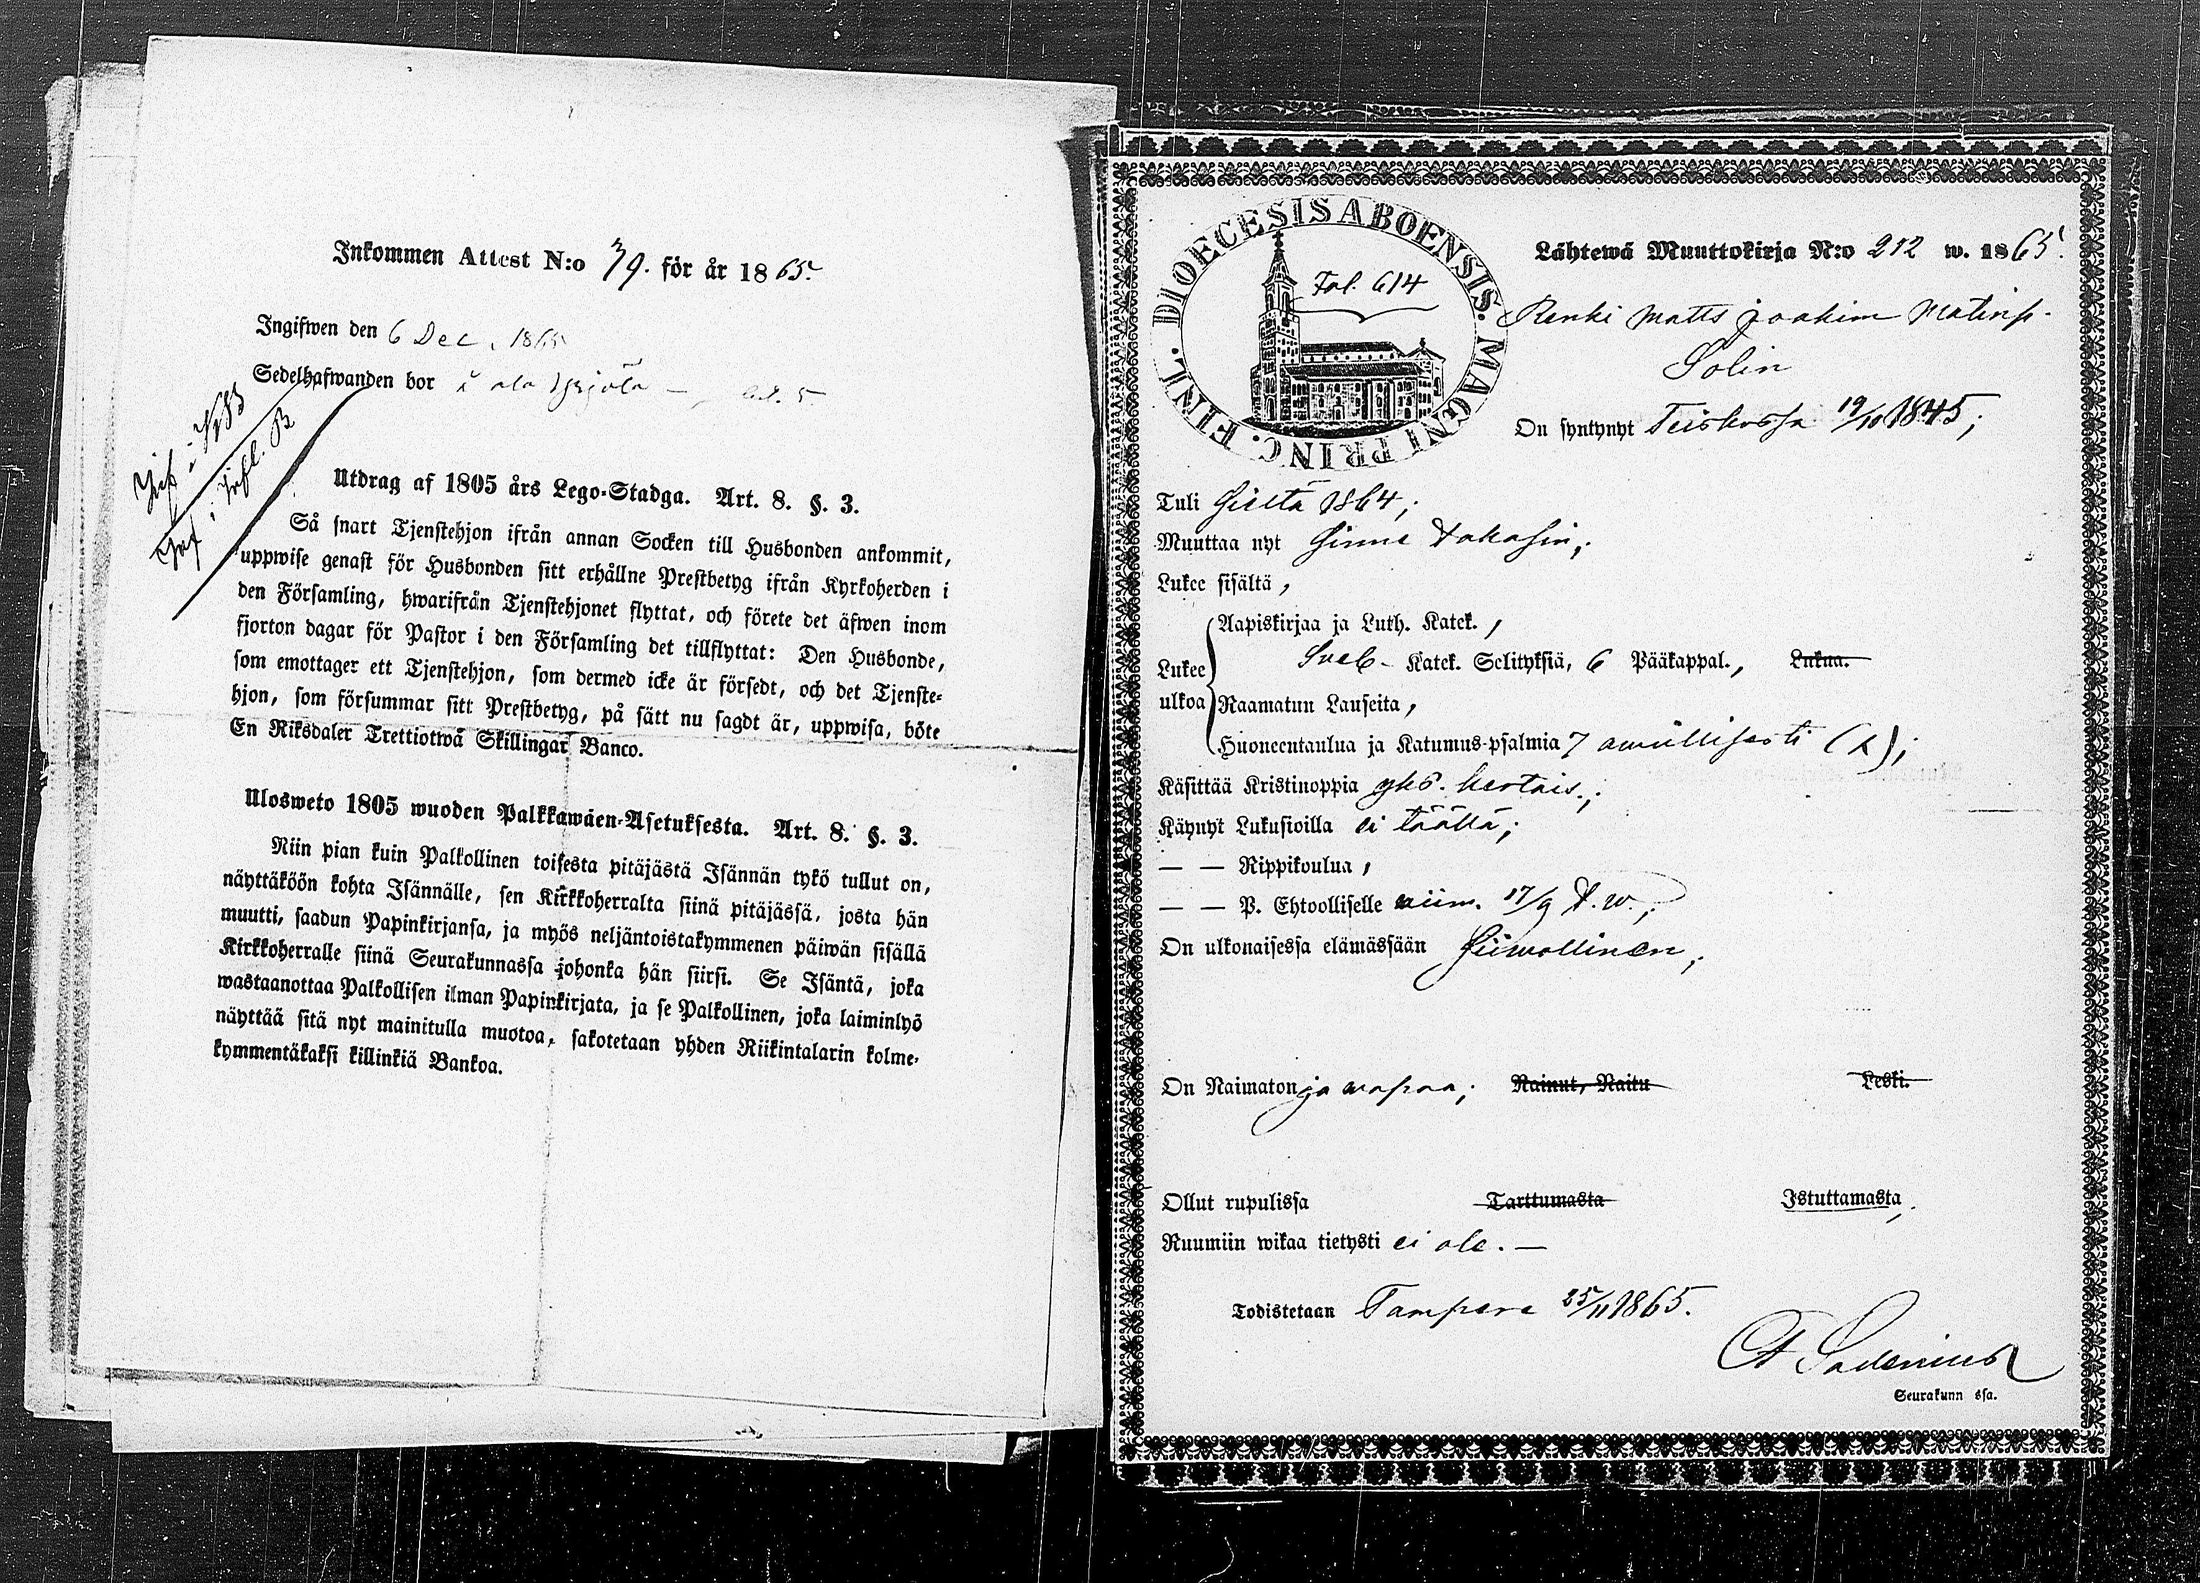 Inkommen Attest N:o 39. för år 1865.
Ingifwen den 6 Dec. 1865
Sedelhafwanden bor å ala
Utdrag af 1805 års Lego-Stadga. Art. 8. §. 3.
Så snart Tjenstehjon ifrån annan Socken till Husbonden ankommit,
uppwise genast för Husbonden sitt erhållne Prestbetyg ifrån Kyrkoherden i
den Församling, hwarifrån Tjenstehjonet flyttat, och förete det äfwen inom
fjorton dagar för Pastor i den Församling det tillflyttat: Den Husbonde,
som emottager ett Tjenstehjon, som dermed icke är försedt, och det Tjenste-
hjon, som försummar sitt Prestbetyg, på sätt nu sagdt är, uppwisa, böte
En Riksdaler Trettiotwå Skillingar Banco.
Ulosweto 1805 wuoden Palkkawäen-Asetuksesta. Art. 8. §. 3.
Niin pian kuin Palkollinen toisesta pitäjästä Isännän tykö tullut on,
näyttäköön kohta Isännälle, sen Kirkkoherralta siinä pitäjässä, josta hän
muutti, saadun Papinkirjansa, ja myös neljäntoistakymmenen päiwän sisällä
Kirkkoherralle siinä Seurakunnassa johonka hän siirsi. Se Isäntä, joka
wastaanottaa Palkollisen ilman Papinkirjata, ja se Palkollinen, joka laiminlyö
näyttää sitä nyt mainitulla muotoa, sakotetaan yhden Riikintalarin kolme-
kymmentäkaksi killinkiä Bankoa.
DIOECESIS ABOENSIS. MAGNI PRINC. FINL.
Fol. 614
Lähtewä Muuttokirja N:o 212 w. 1865.
Renki Matts Joakim Matinp.
Solin
On syntynyt Teiskossa 19/10 1845;
Tuli Sieltä 1864;
Muuttaa nyt Sinne takasin;
Lukee sisältä,
Aapiskirjaa ja Luth. Katek.,
Lukee ulkoa Sveb- Katek. Selityksiä, 6 Pääkappal., Lukua.
Raamatun Lauseita,
Huoneentaulua ja Katumus-psalmia 7 awullisesti (x);
Käsittää Kristinoppia yks. kertais.;
Käynyt Lukusioilla ei täällä;
— — Rippikoulua,
— — P. Ehtoolliselle wiim. 17/9 t. w.;
On ulkonaisessa elämässään Siiwollinen;
On Naimaton ja wapaa; Nainut, Naitu Leski.
Ollut rupulissa Tarttumasta Istuttamasta,
Ruumiin wikaa tietysti ei ole. —
Todistetaan Tampere 25/11 1865.
Sadenius
Seurakunn ssa.